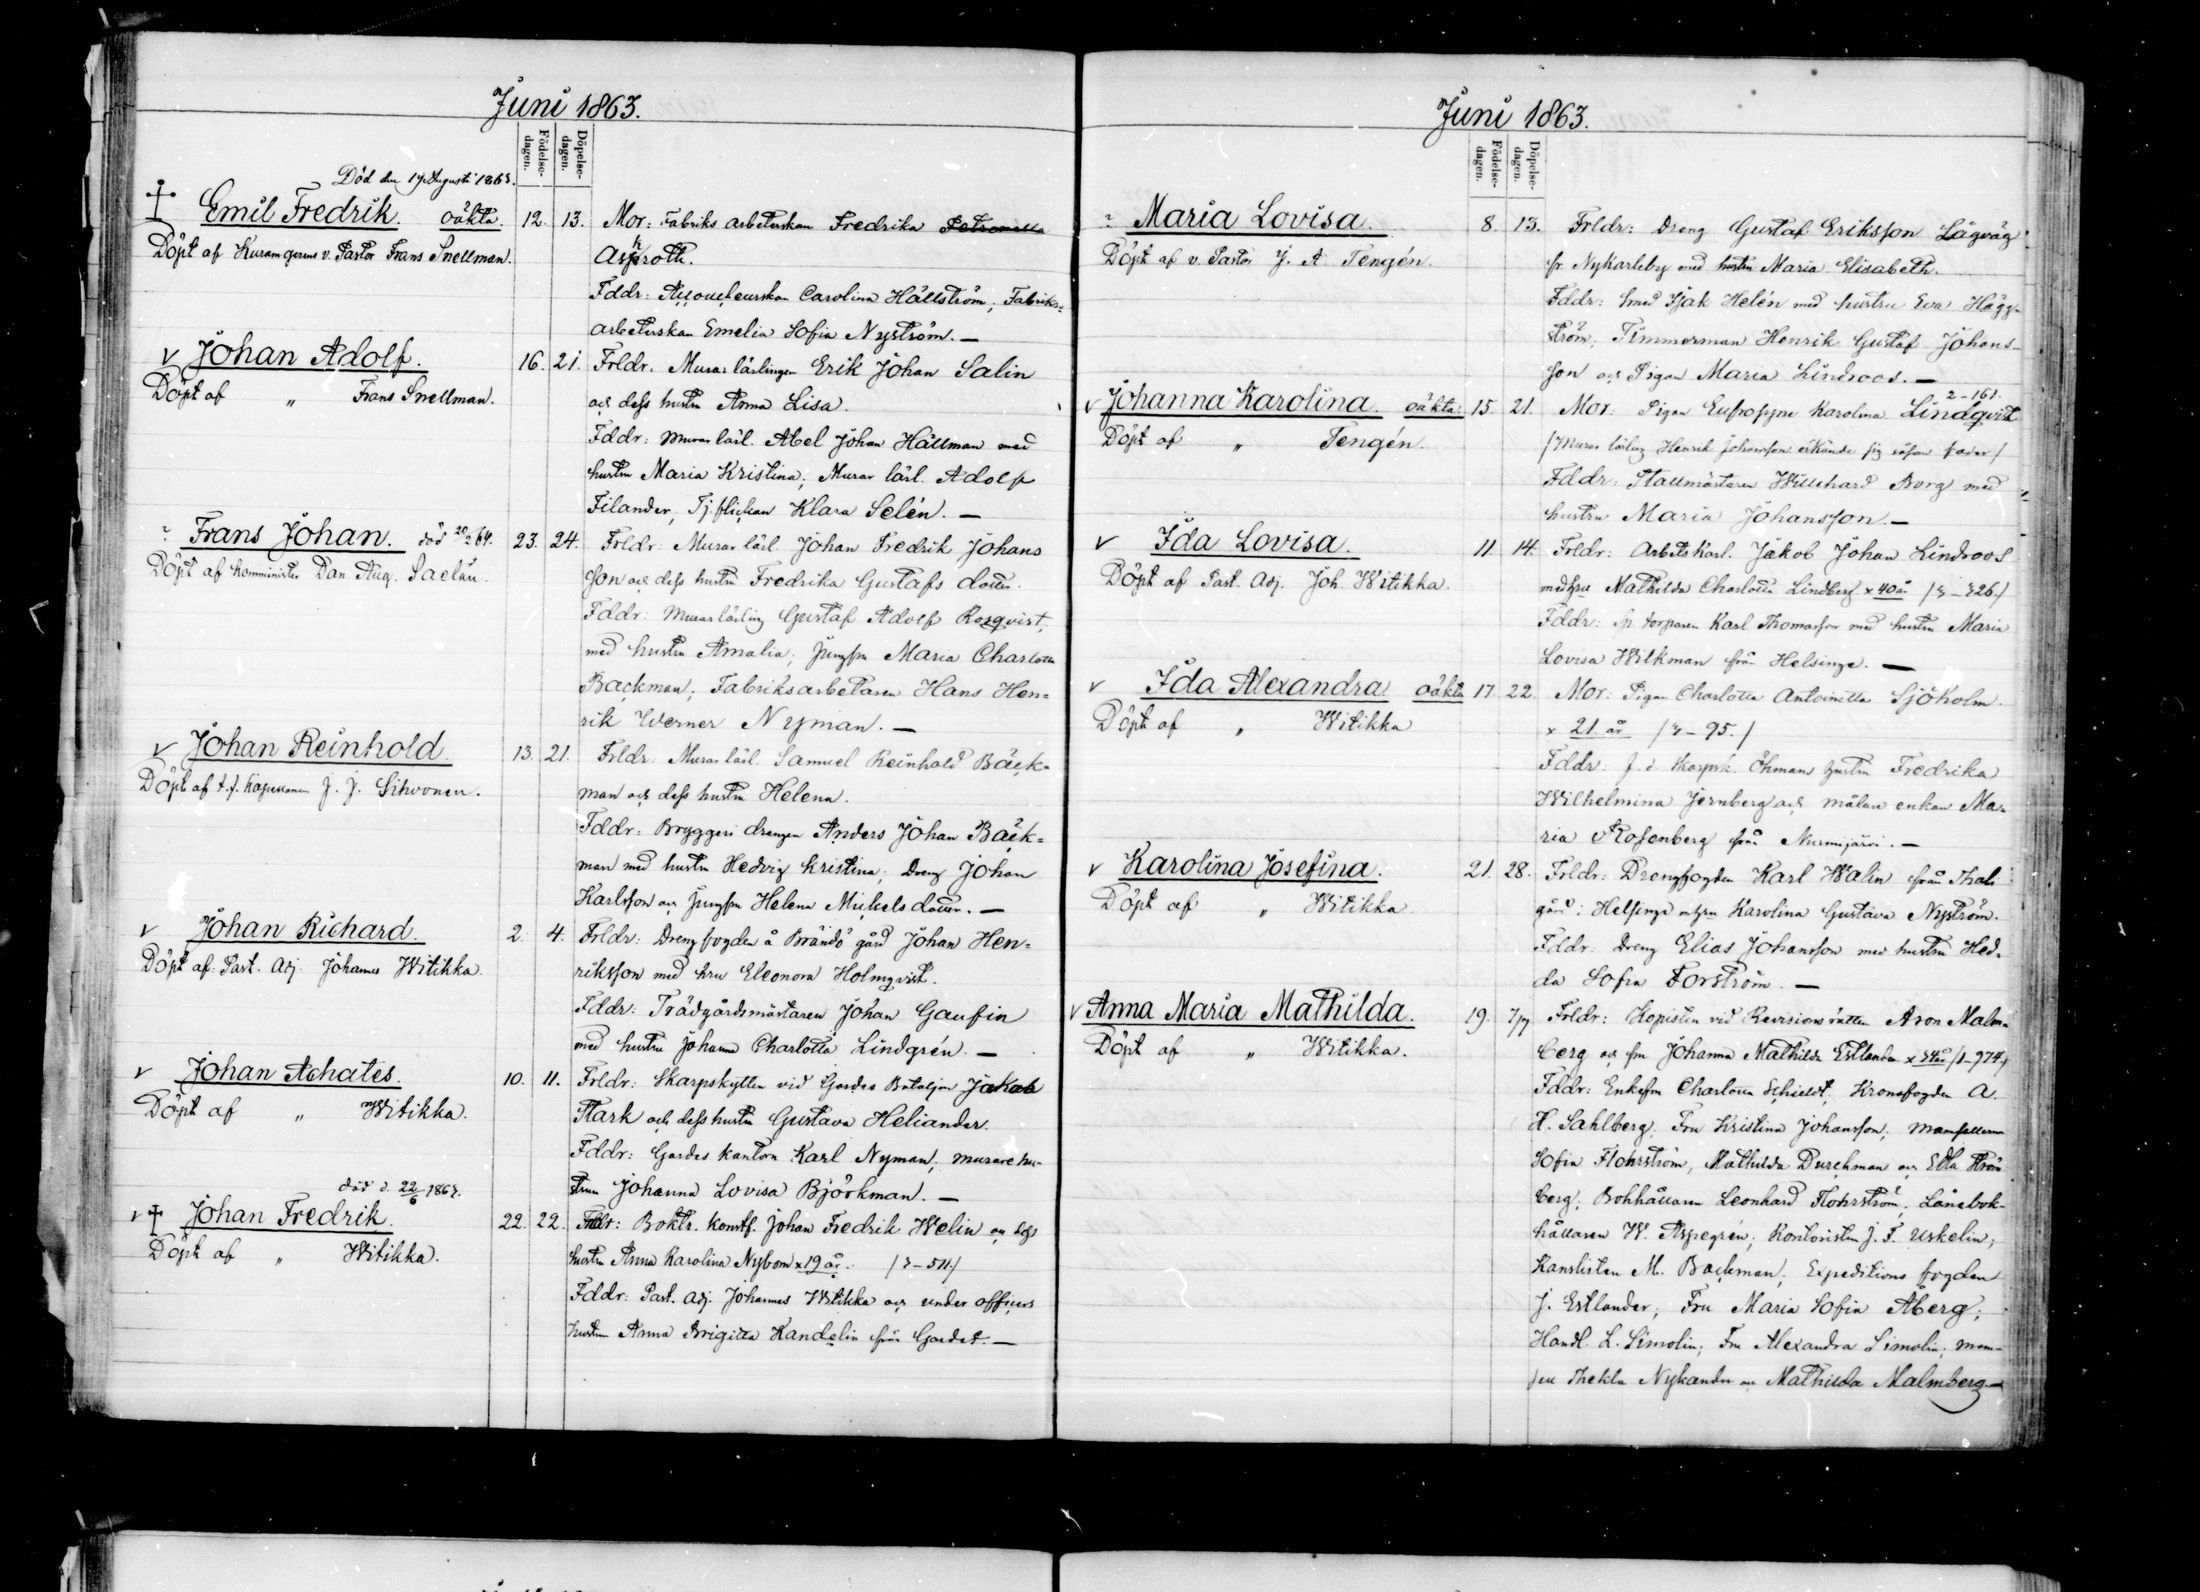 Juni 1863.
Födelse-dagen.
Döpelse-dagen.
Död den 19 Augusti 1863.
Emil Fredrik. oäkta. 12. 13. Mor: Fabriks arbeterskan Fredrika Petronella
Döpt af v. Pastor Frans Snellman. Asphroth.
Fddr: Accoucheurskan Carolina Hällström, Fabriks=
arbeterskan Emelia Sofia Nyström. —
v Johan Adolf. 16. 21. Frldr. Murar lärlingen Erik Johan Salin
Döpt af „ Frans Snellman. och dess hustru Anna Lisa.
Fddr: Murar lärl. Abel Johan Hällman med
hustru Maria Kristina; Murar lärl. Adolf
Filander, Tj. flickan Klara Selén. —
Frans Johan. död 20/2 64. 23. 24. Frldr. Murar lärl. Johan Fredrik Johans
Döpt af Komminister Dan. Aug. son och dess hustru Fredrika Gustafs dotter.
Fddr: Murar lärling Gustaf Adolf Rosqvist,
med hustru Amalia; Jungfru Maria Charlotta
Backman; Fabriksarbetaren Hans Hen=
rik Werner Nyman. —
v Johan Reinhold 13. 21. Frldr. Murar lärl. Samuel Reinhold Bäck=
Döpt af t.f. Kapellanen J. J. Sihvonen. man och dess hustru Helena.
Fddr: Bryggeri drengen Anders Johan Bäck=
man med hustru Hedvig Kristina; Dreng Johan
Karlsson och Jungfru Helena Mickels dotter. —
v Johan Richard. 2. 4. Frldr: Drengfogden å Brändö gård Johan Hen=
Döpt af: Past. Adj. Johannes Witikka. riksson med hru Eleonora Holmqvist.
Fddr: Trädgårdsmästaren Johan Gaufin
med hustru Johanna Charlotta Lindgrén. —
v Johan Achates. 10. 11. Frldr: Skarpskytten vid Gardes Bataljon Jakob
Döpt af „ Witikka. Stark och dess hustru Gustava Heliander.
Fddr: Gardes kantorn Karl Nyman, murare hu-
strun Johanna Lovisa Björkman. —
död d. 22/6 1863.
v Johan Fredrik. 22. 22. Frldr: Boktr. konstf. Johan Fredrik Welin och dess
Döpt af „ Witikka. hustru Anna Karolina Nybom x 19 år. /3-511/
Fddr: Past. adj. Johannes Witikka och under officers
hustrun Anna Brigitta Kandelin från Gardet. —
Juni 1863.
Födelse-dagen.
Döpelse-dagen.
Maria Lovisa. 8. 13. Frldr: Dreng Gustaf Eriksson Lågväg
Döpt af v. Pastor J. A. Tengén. fr. Nykarleby med hustru Maria Elisabeth.
Fddr: Smed Isak Helén med hustru Eva Hägg-
ström; Timmerman Henrik Gustaf Johans-
son och Pigan Maria Lindroos. —
2-161.
v Johanna Karolina. oäkta. 15. 21. Mor: Pigan Eufrosyne Karolina Lindqvist
Döpt af „ Tengén. /Murar lärling Henrik Johansson erkände sig såsom fader/
Fddr: Stallmästaren Willehard Borg med
hustru Maria Johansson. —
v Ida Lovisa. 11. 14. Frldr: Arbets Karl. Jakob Johan Lindroos
Döpt af Past. Adj. Joh. Witikka. med hru Mathilda Charlotta Lindberg x 40 år /3-326./
Fddr: torparen Karl Thomasson med hustru Maria
Lovisa Wilkman från Helsinge. —
v Ida Alexandra oäkta 17 22. Mor: Pigan Charlotta Antoinetta Sjöholm.
Döpt af „ Witikka x 21 år /3-95./
Fddr: f. d. Skarpsk. Öhmans hustru Fredrika
Wilhelmina Jernberg och målare enkan Ma-
ria Rosenberg från Nurmijärvi. —
v Karolina Josefina. 21. 28. Frldr: Drengfogden Karl Walin från Thali
Döpt af „ Witikka gård i Helsinge m hru Karolina Gustava Nyström.
Fddr: Dreng Elias Johansson med hustru Hed-
da Sofia Forström. —
v Anna Maria Mathilda. 19. 7/7 Frldr: Kopisten vid Revisionsrätten Aron Malm-
Döpt af „ Witikka. berg och fru Johanna Mathilda Estlander x 34 år /1-974/
Fddr: Enkefru Charlotta Schieldt, Kronofogden A.
H. Sahlberg; Fru Kristina Johansson; Mamsellerna
Sofia Flohrström, Mathilda Durchman och Edla Ström
berg; Bokhållaren Leonhard Flohrström; Länebok-
hållaren W. Aspegrén; Kontoristen J. F. Uskelin;
Kanslisten M. Backman; Expeditions fogden
J. Estlander; Fru Maria Sofia Åberg;
Handl. L. Simolin; Fru Alexandra Simolin; mam-
sell Thekla Nykander och Mathilda Malmberg —